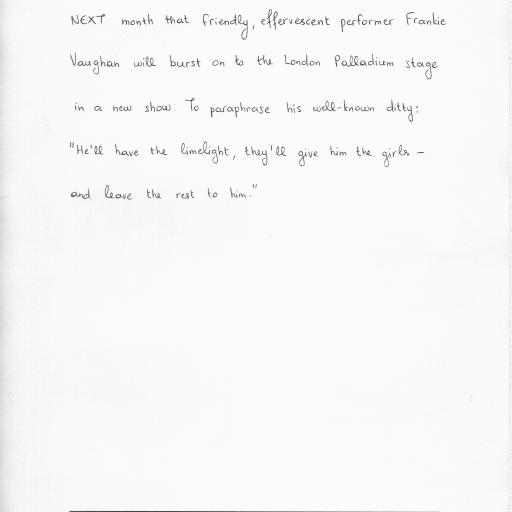 NEXT month that friendly, effervescent performer Frankie
Vaughan will burst on to the London Palladium stage
in a new show. To paraphrase his well-known ditty:
"He'll have the limelight, they'll give him the girls -
and leave the rest to him."